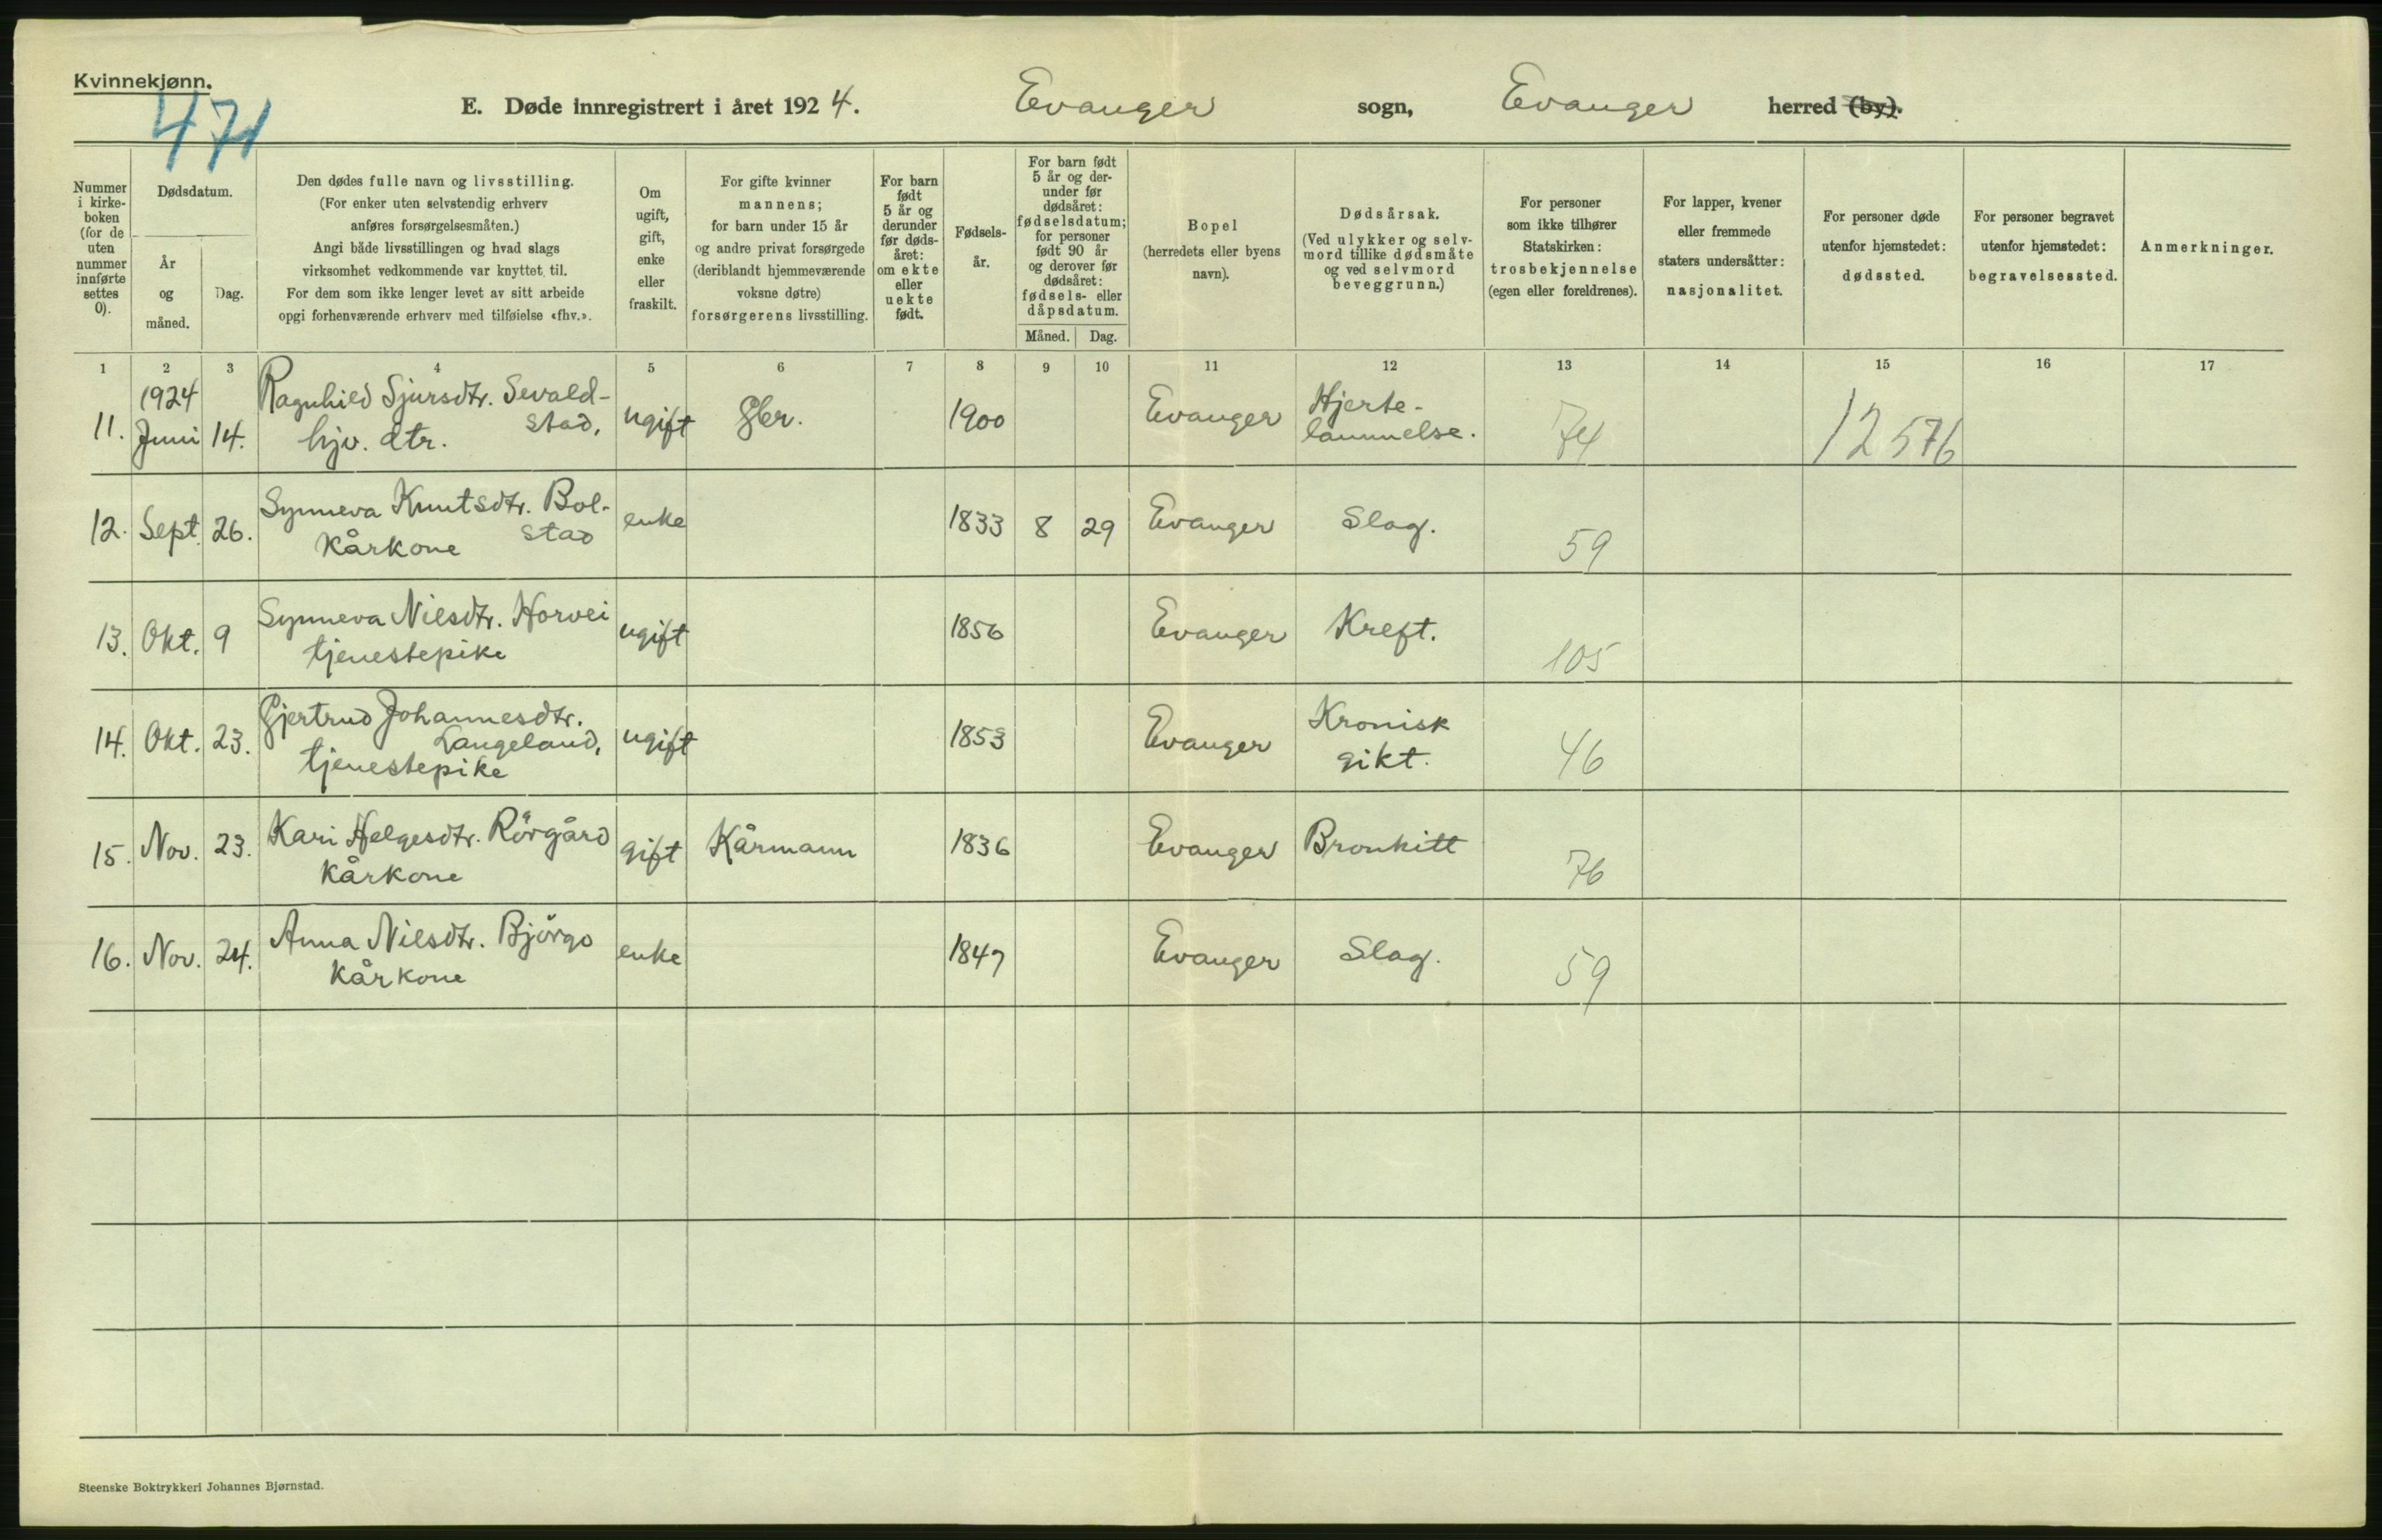 Kvinnekjønn.
471
E. Døde innregistrert i året 1924. Evanger sogn, Evanger herred (by).
Nummer
i kirke-
boken
(for de
uten
nummer
innførte
settes
0).
Dødsdatum.
År
og
måned.
Dag.
Den dødes fulle navn og livsstilling.
(For enker uten selvstendig erhverv
anføres forsørgelsesmåten.)
Angi både livsstillingen og hvad slags
virksomhet vedkommende var knyttet til.
For dem som ikke lenger levet av sitt arbeide
opgi forhenværende erhverv med tilføielse «fhv.».
Om
ugift,
gift,
enke
eller
fraskilt.
For gifte kvinner
mannens;
for barn under 15 år
og andre privat forsørgede
(deriblandt hjemmeværende
voksne døtre)
forsørgerens livsstilling.
For barn
født
5 år og
derunder
før døds-
året:
om ekte
eller
uekte
født.
Fødsels-
år.
For barn født
5 år og der-
under før
dødsåret:
fødselsdatum;
for personer
født 90 år
og derover før
dødsåret:
fødsels- eller
dåpsdatum.
Måned. Dag.
Bopel
(herredets eller byens
navn).
Dødsårsak.
(Ved ulykker og selv-
mord tillike dødsmåte
og ved selvmord
beveggrunn.)
For personer
som ikke tilhører
Statskirken:
trosbekjennelse
(egen eller foreldrenes).
For lapper, kvener
eller fremmede
staters undersåtter:
nasjonalitet.
For personer døde
utenfor hjemstedet:
dødssted.
For personer begravet
utenfor hjemstedet:
begravelsessted.
Anmerkninger.
1 2 3 4 5 6 7 8 9 10 11 12 13 14 15 16 17
1924
11. Juni 14. Ragnhild Sjursdtr. Sevald-
stad,
hjv. dtr. ugift gbr. 1900 Evanger Hjerte-
lammelse. 74 12576
12. Sept. 26. Synneva Knutsdtr. Bol-
stad
Kårkone enke 1833 8 29 Evanger Slag. 59
13. Okt. 9 Synneva Nilsdtr. Horvei
tjenestepike ugift 1856 Evanger Kreft. 105
14. Okt. 23. Gjertrud Johannesdtr.
Langeland,
tjenestepike ugift 1853 Evanger Kronisk
gikt. 46
15. Nov. 23. Kari Helgesdtr. Rörgård
Kårkone gift Kårmann 1836 Evanger Bronkitt 76
16. Nov. 24. Anna Nilsdtr. Björgo
Kårkone enke 1847 Evanger Slag. 59
Steenske Boktrykkeri Johannes Bjørnstad.